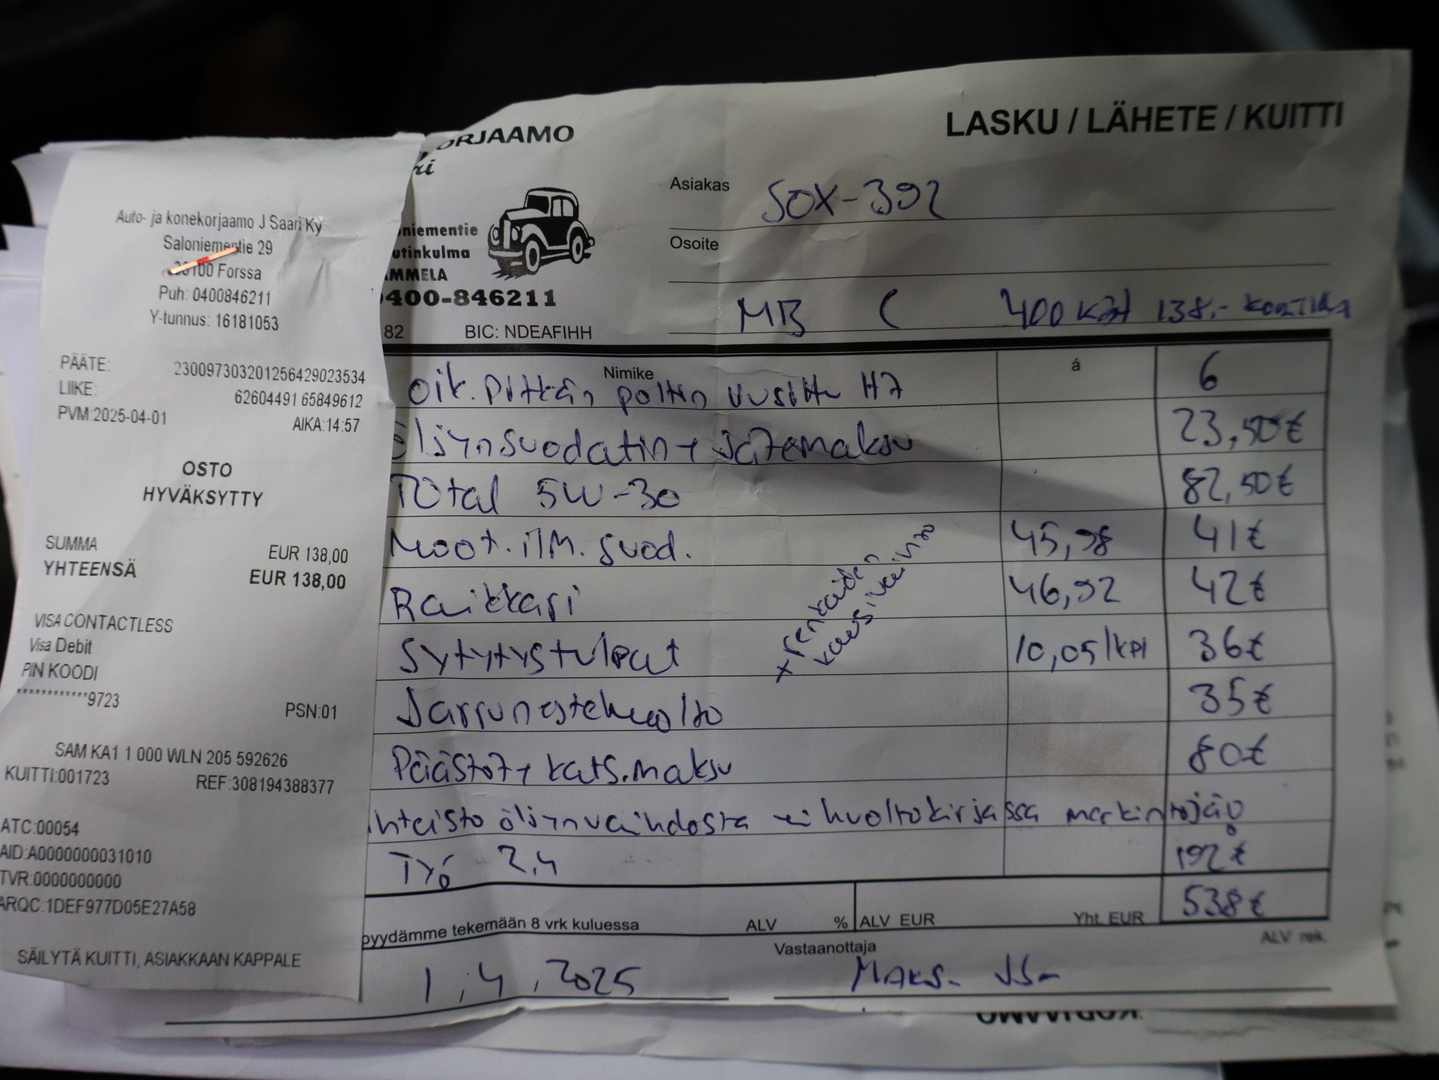 Auto- ja konekorjaamo J Saari Ky
Saloniementie 29
Forssa
Puh: 0400846211
Y-tunnus: 16181053
PÄÄTE: 230097303201256429023534
LIIKE: 62604491 65849612
PVM:2025-04-01 AIKA:14:57
OSTO
HYVÄKSYTTY
SUMMA EUR 138,00
YHTEENSÄ EUR 138,00
VISA CONTACTLESS
Visa Debit
PIN KOODI
************9723
PSN:01
SAM KA1 1 000 WLN 205 592626
KUITTI:001723 REF:308194388377
ATC:00054
AID:A0000000031010
TVR:0000000000
ARQC:1DEF977D05E27A58
SÄILYTÄ KUITTI, ASIAKKAAN KAPPALE
ORJAAMO
ri
niementie
utinkulma
MMELA
0400-846211
82 BIC: NDEAFIHH
LASKU / LÄHETE / KUITTI
Asiakas SOX-392
Osoite
MB C 400 KÄT 138,- KORTILLA
Nimike á
oik. pitkän poltin uusittu H7 6
öljynsuodatin + jätemaksu 23,50€
Total 5W-30 82,50€
Moot. ilm. suod. 45,98 41€
Raikkari 46,92 42€
Sytytystulpat 10,05/kpl 36€
Jarrunestehuolto 35€
Päästöt + kats.maksu 80€
+ renkaiden
kausivaihto
öljynvaihdosta ei huoltokirjassa merkintöjä
Työ 2,4 192€
538€
pyydämme tekemään 8 vrk kuluessa ALV % ALV EUR Yht. EUR
ALV rek.
Vastaanottaja
1.4.2025 MAKS.
KORJAAMO